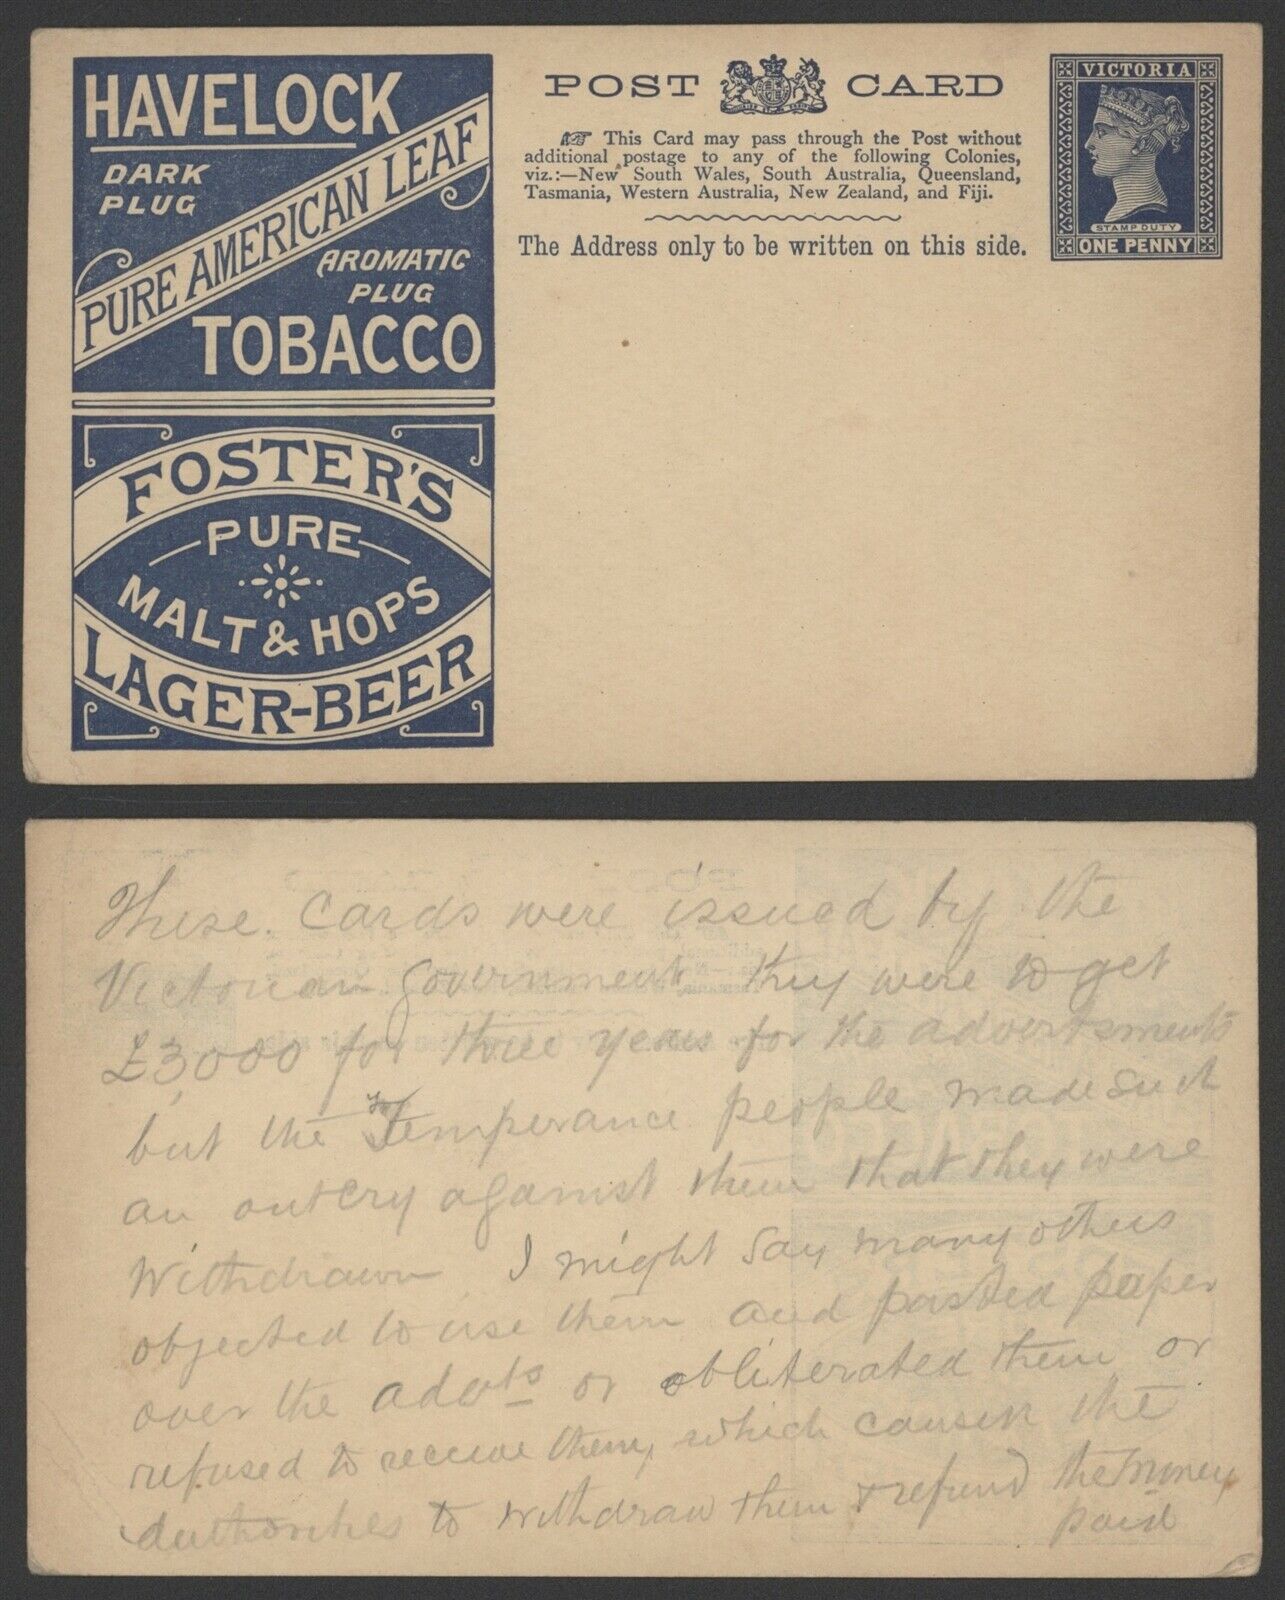 HAVELOCK
DARK
PLUG
PURE AMERICAN LEAF
AROMATIC
PLUG
TOBACCO
FOSTER'S
PURE
MALT & HOPS
LAGER-BEER
POST CARD
This Card may pass through the Post without
additional postage to any of the following Colonies,
viz.:—New South Wales, South Australia, Queensland,
Tasmania, Western Australia, New Zealand, and Fiji.
The Address only to be written on this side.
VICTORIA
STAMP DUTY
ONE PENNY
These Cards were issued by the
Victorian Government they were to get
£3,000 for three years for the advertsments
but the Temperance people made such
an outcry against them that they were
Withdrawn I might say many others
objected to use them and pasted paper
over the advts or obliterated them or
refused to receive them, which the
Authorities to withdraw them & refund the money
paid